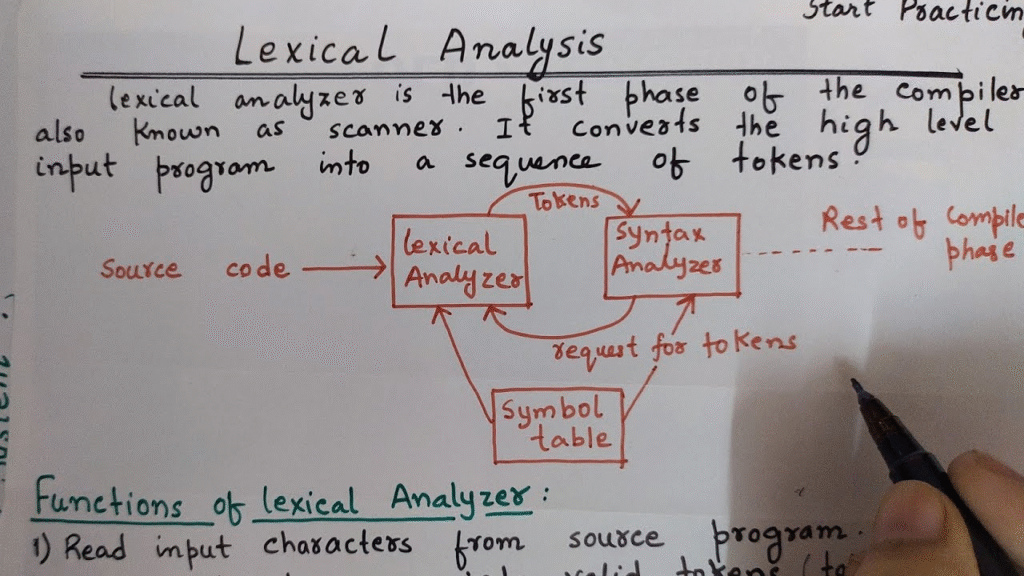 Start Practicin
Lexical Analysis
lexical analyzer is the first phase of the compiler
also known as scanner. It converts the high level
input program into a sequence of tokens.
Tokens
lexical
Analyzer
Syntax
Analyzer
Rest of Compile
phase
Source code
request for tokens
Symbol
table
Functions of lexical Analyzer:
1) Read input characters from source program.
valid tokens (to